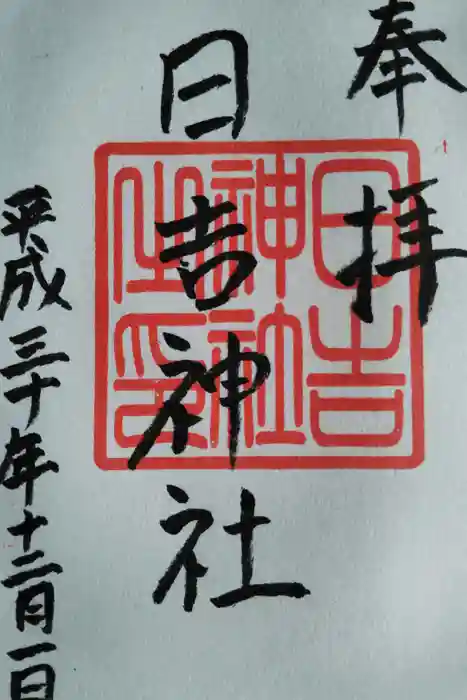 奉拝
日吉神社
平成三十年十二月一日
日吉
神社
之印